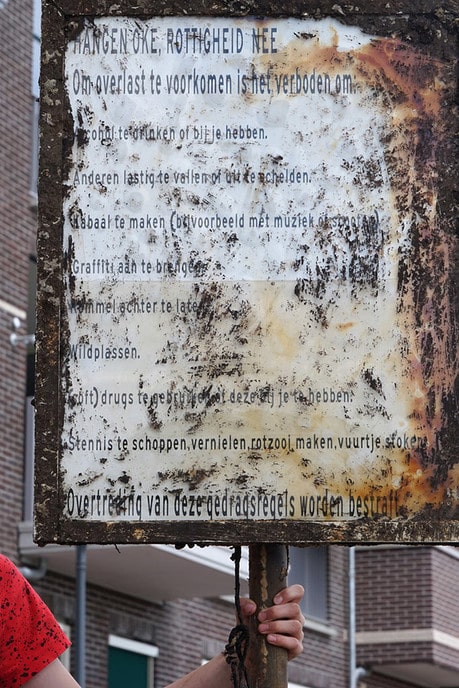 HANGEN OKE, ROTTIGHEID NEE
Om overlast te voorkomen is het verboden om
Alcohol te drinken of bij je hebben.
Anderen lastig te vallen of uit te schelden.
Kabaal te maken (bijvoorbeeld met muziek of scooters)
Graffiti aan te brengen
Rommel achter te laten
Wildplassen.
(soft)drugs te gebruiken of deze bij je te hebben.
Stennis te schoppen,vernielen,rotzooi maken,vuurtje stoken
Overtreding van deze gedragsregels worden bestraft